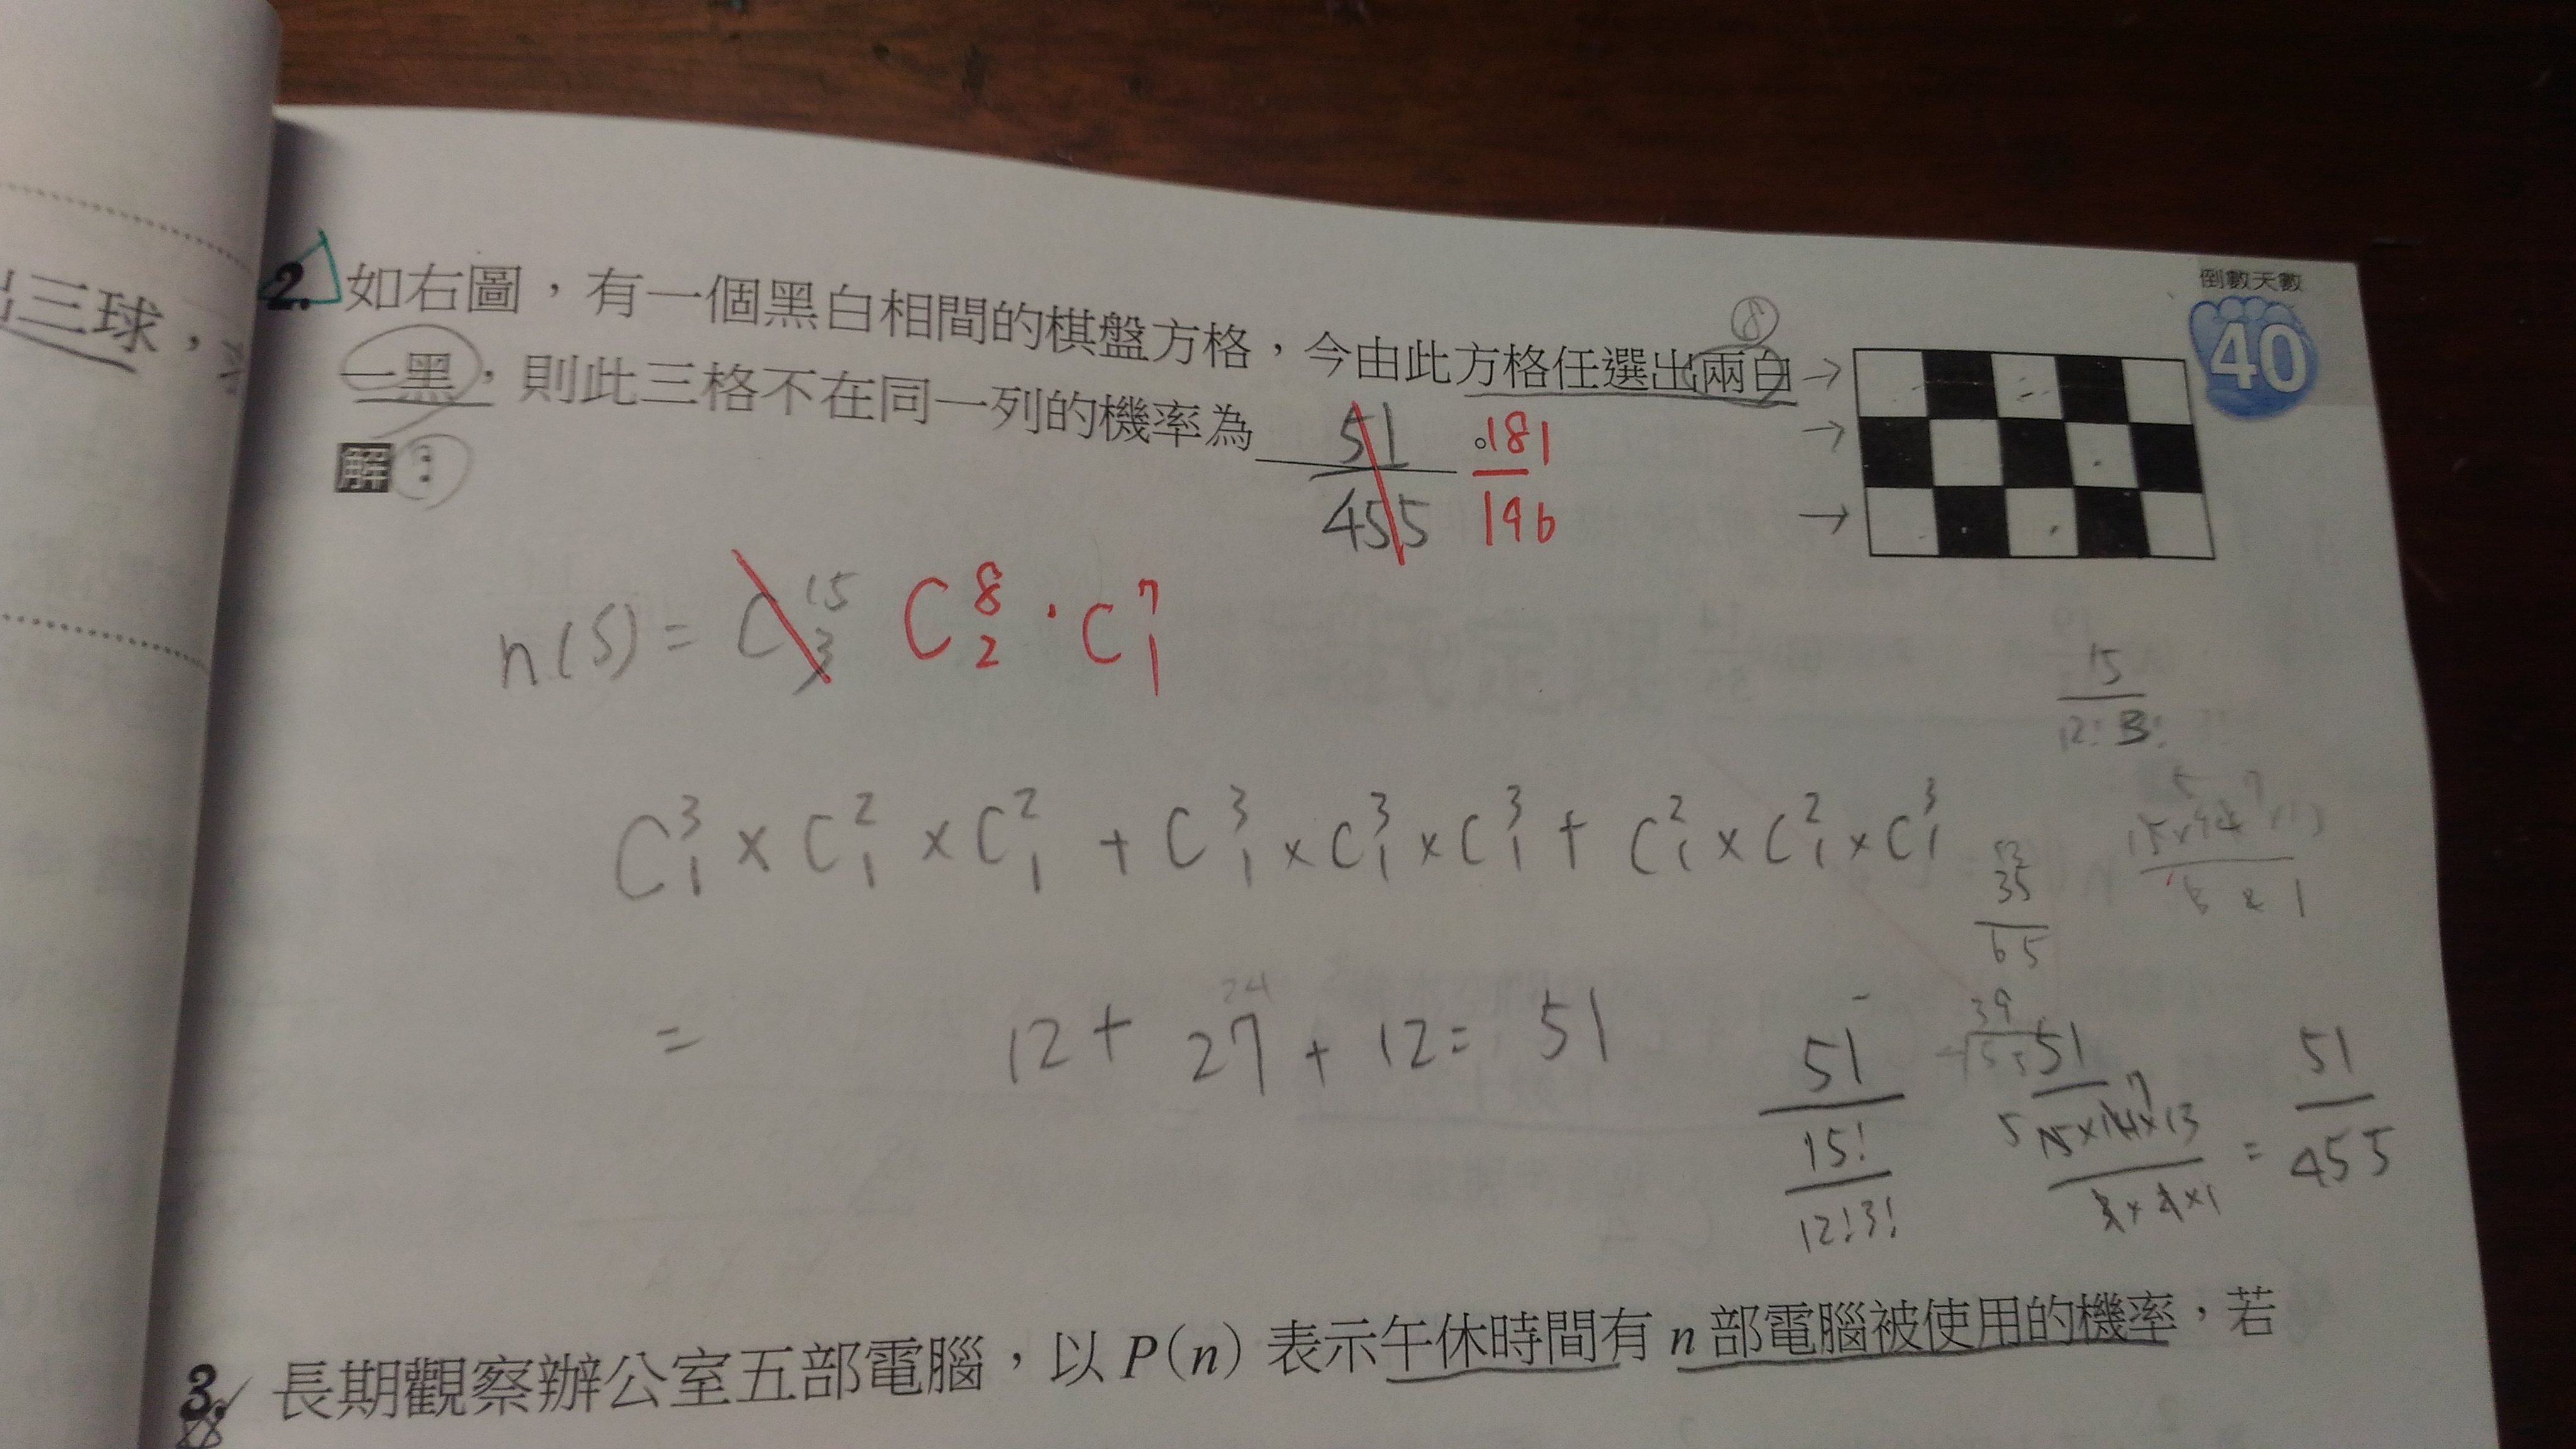 出三球，
倒數天數
40
2. 如右圖，有一個黑白相間的棋盤方格，今由此方格任選出兩白
一黑，則此三格不在同一列的機率為 51/455 181/196
解：
8
→
→
→
n(S) = C^15_3 C^8_2 · C^7_1
15/12!3!
C^3_1 × C^2_1 × C^2_1 + C^3_1 × C^3_1 × C^3_1 + C^2_1 × C^2_1 × C^3_1
35/65
= 12 + 27 + 12 = 51
24
39
51/(15!/12!3!) 51/(15×14×13/3×2×1) = 51/455
5 7
3. 長期觀察辦公室五部電腦，以 P(n) 表示午休時間有 n 部電腦被使用的機率，若